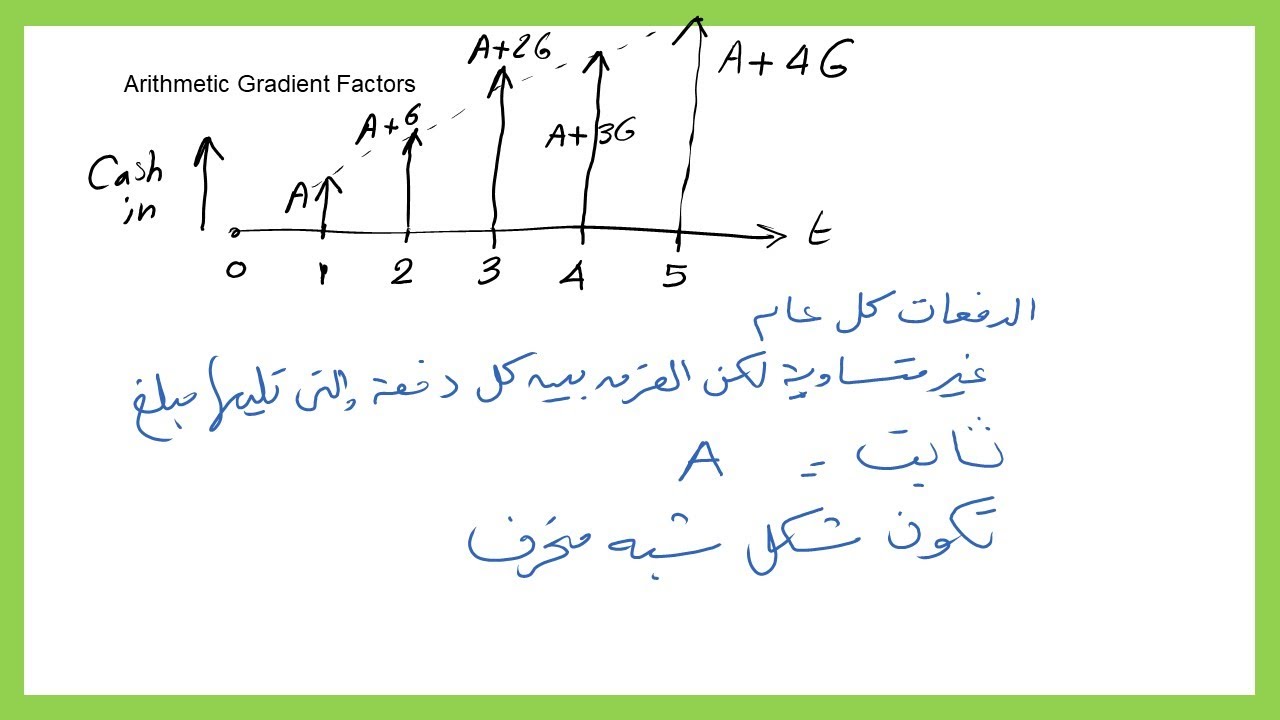 Arithmetic Gradient Factors
Cash
in
A
A+G
A+2G
A+3G
A+4G
t
0 1 2 3 4 5
الدفعات كل عام
غير متساوية لكن الفرق بين كل دفعة والتى تليها مبلغ
ثابت = A
تكون شكل شبه منحرف